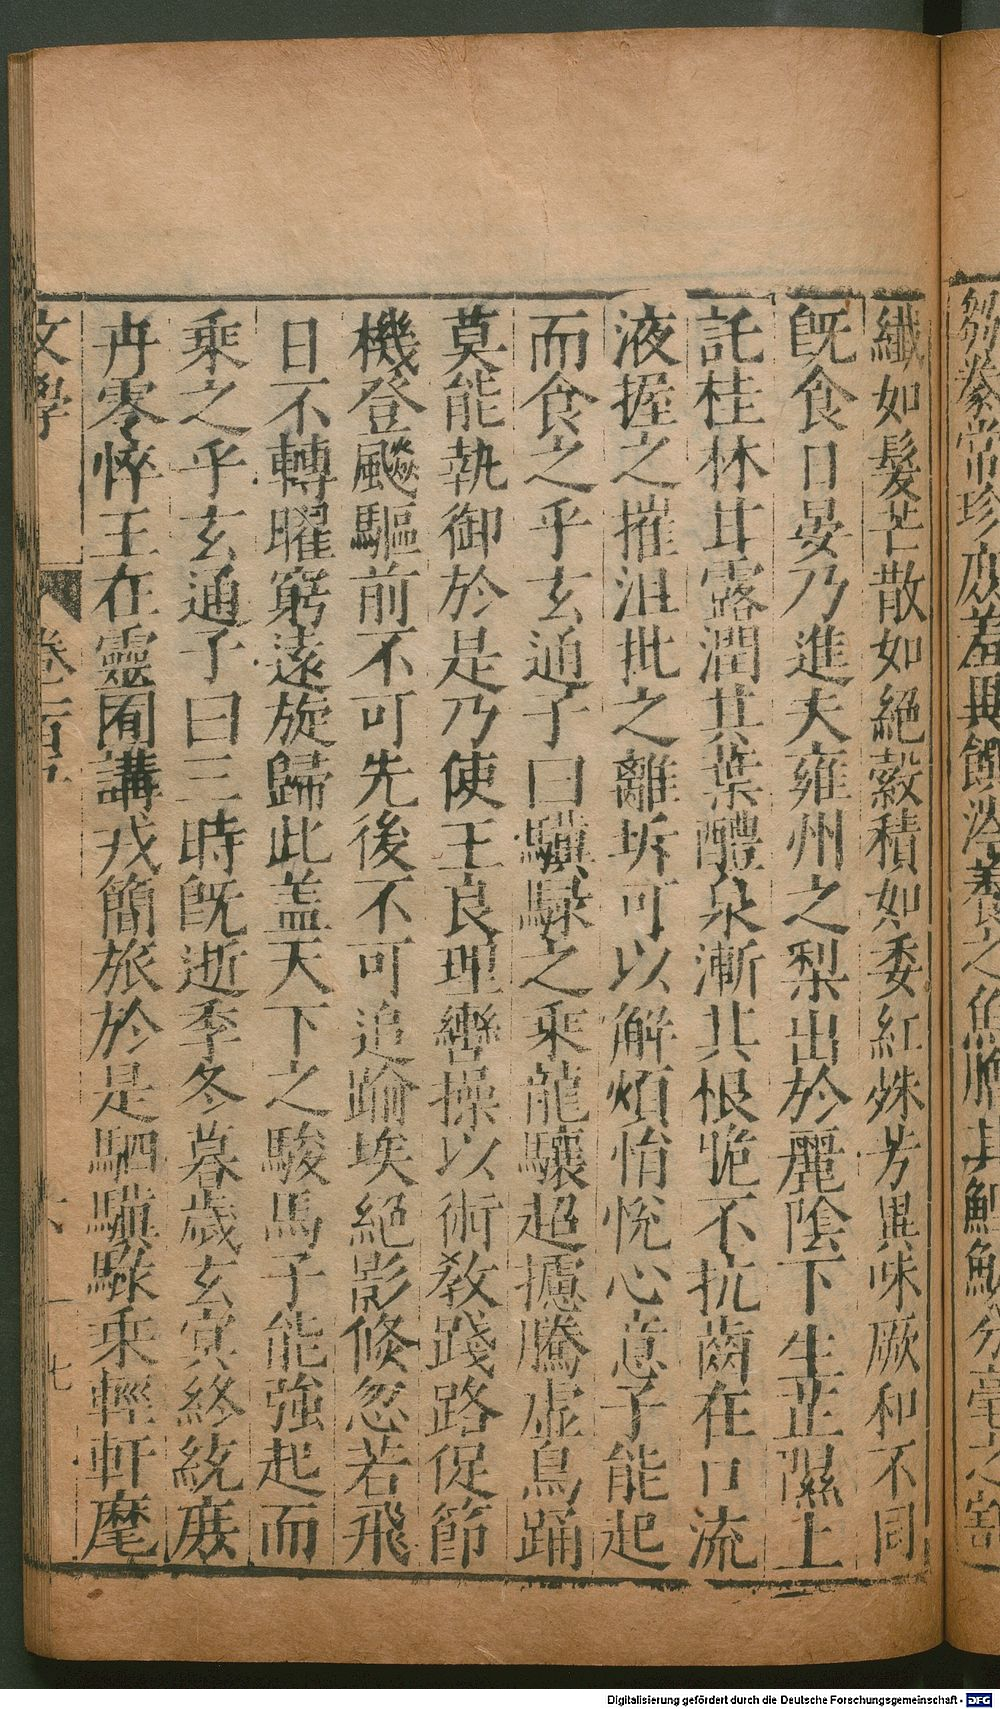 纖如髮芒散如絕縠積如委紅殊芳異味厥和不同
旣食日晏乃進夫雍州之梨出於麗陰下生芷隰上
託桂林甘露潤其葉醴泉漸其根脆不抗齒在口流
液握之摧沮批之離坼可以解煩悁悅心意子能起
而食之乎玄通子曰驥騄之乘龍驤超攄騰虛鳥踊
莫能執御於是乃使王良理轡操以術敎踐路促節
機登飈驅前不可先後不可追踰埃絕影倐忽若飛
日不轉曜窮遠旋歸此盖天下之駿馬子能強起而
乘之乎玄通子曰三時旣逝季冬暮歲玄冥終統庭
卉零悴王在靈囿講戎簡旅於是駟驥騄乘輕軒麾
文學
卷一百
十七
Digitalisierung gefördert durch die Deutsche Forschungsgemeinschaft - DFG